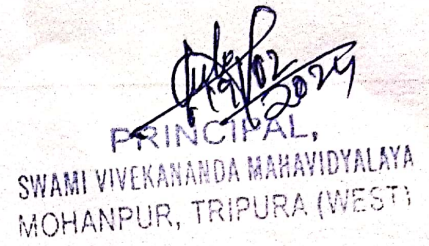 02
2024
PRINCIPAL,
SWAMI VIVEKANANDA MAHAVIDYALAYA
MOHANPUR, TRIPURA (WEST)